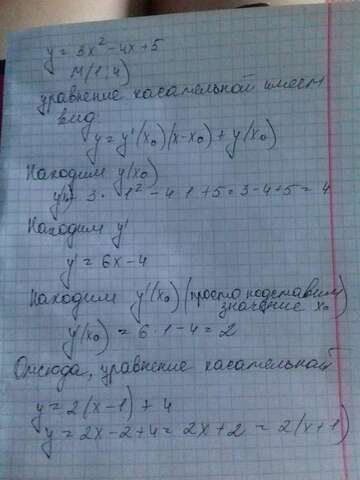 y = 3x² - 4x + 5
M(1; 4)
уравнение касательной имеет
вид:
y = y'(x₀)(x - x₀) + y(x₀)
Находим y(x₀)
y(1) = 3 · 1² - 4 · 1 + 5 = 3 - 4 + 5 = 4
Находим y'
y' = 6x - 4
Находим y'(x₀) (просто подставим
значение x₀)
y'(x₀) = 6 · 1 - 4 = 2
Отсюда, уравнение касательной
y = 2(x - 1) + 4
y = 2x - 2 + 4 = 2x + 2 = 2(x + 1)